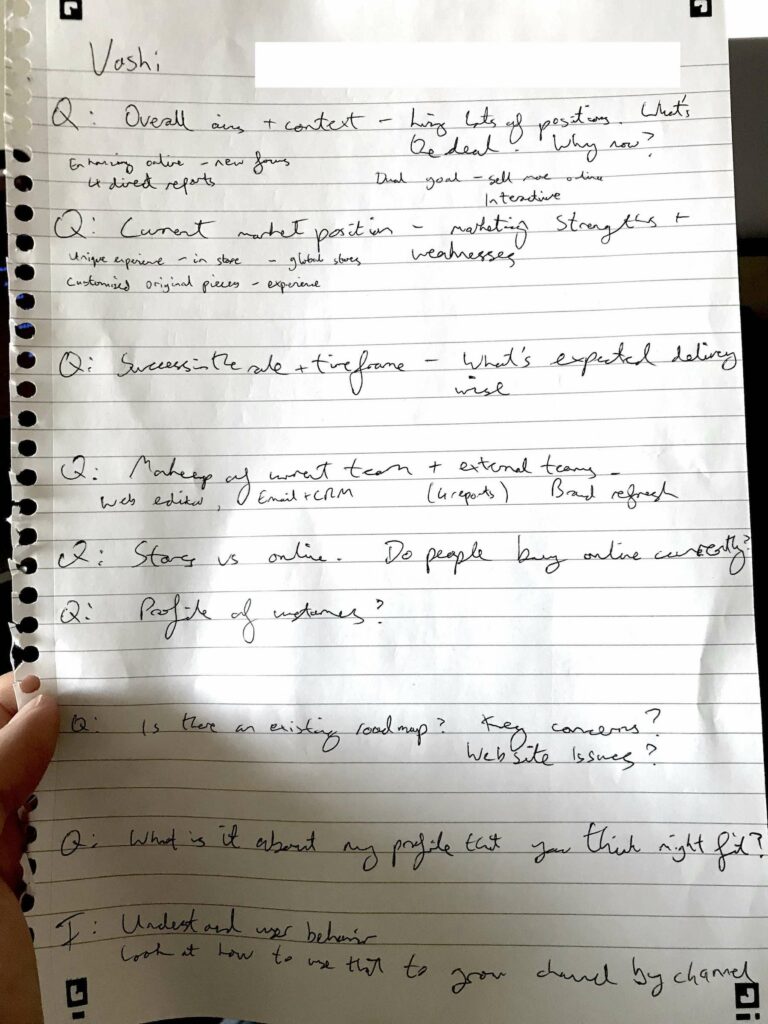 Vashi
Q: Overall aims + context - hiring lots of positions. What's
the deal. Why now?
Enhancing online - new focus
4 direct reports
Dual goal - sell more online
Interactive
Q: Current market position - marketing strengths +
weaknesses
Unique experience - in store - global stores
Customised original pieces - experience
Q: Success in the role + timeframe - What's expected delivery
wise
Q: Makeup of current team + external teams -
Web editor, Email + CRM (4 reports) Brand refresh
Q: Stores vs online. Do people buy online currently?
Q: Profile of customers?
Q: Is there an existing roadmap? Key concerns?
Website issues?
Q: What is it about my profile that you think might fit?
I: Understand user behavior
Look at how to use that to grow channel by channel